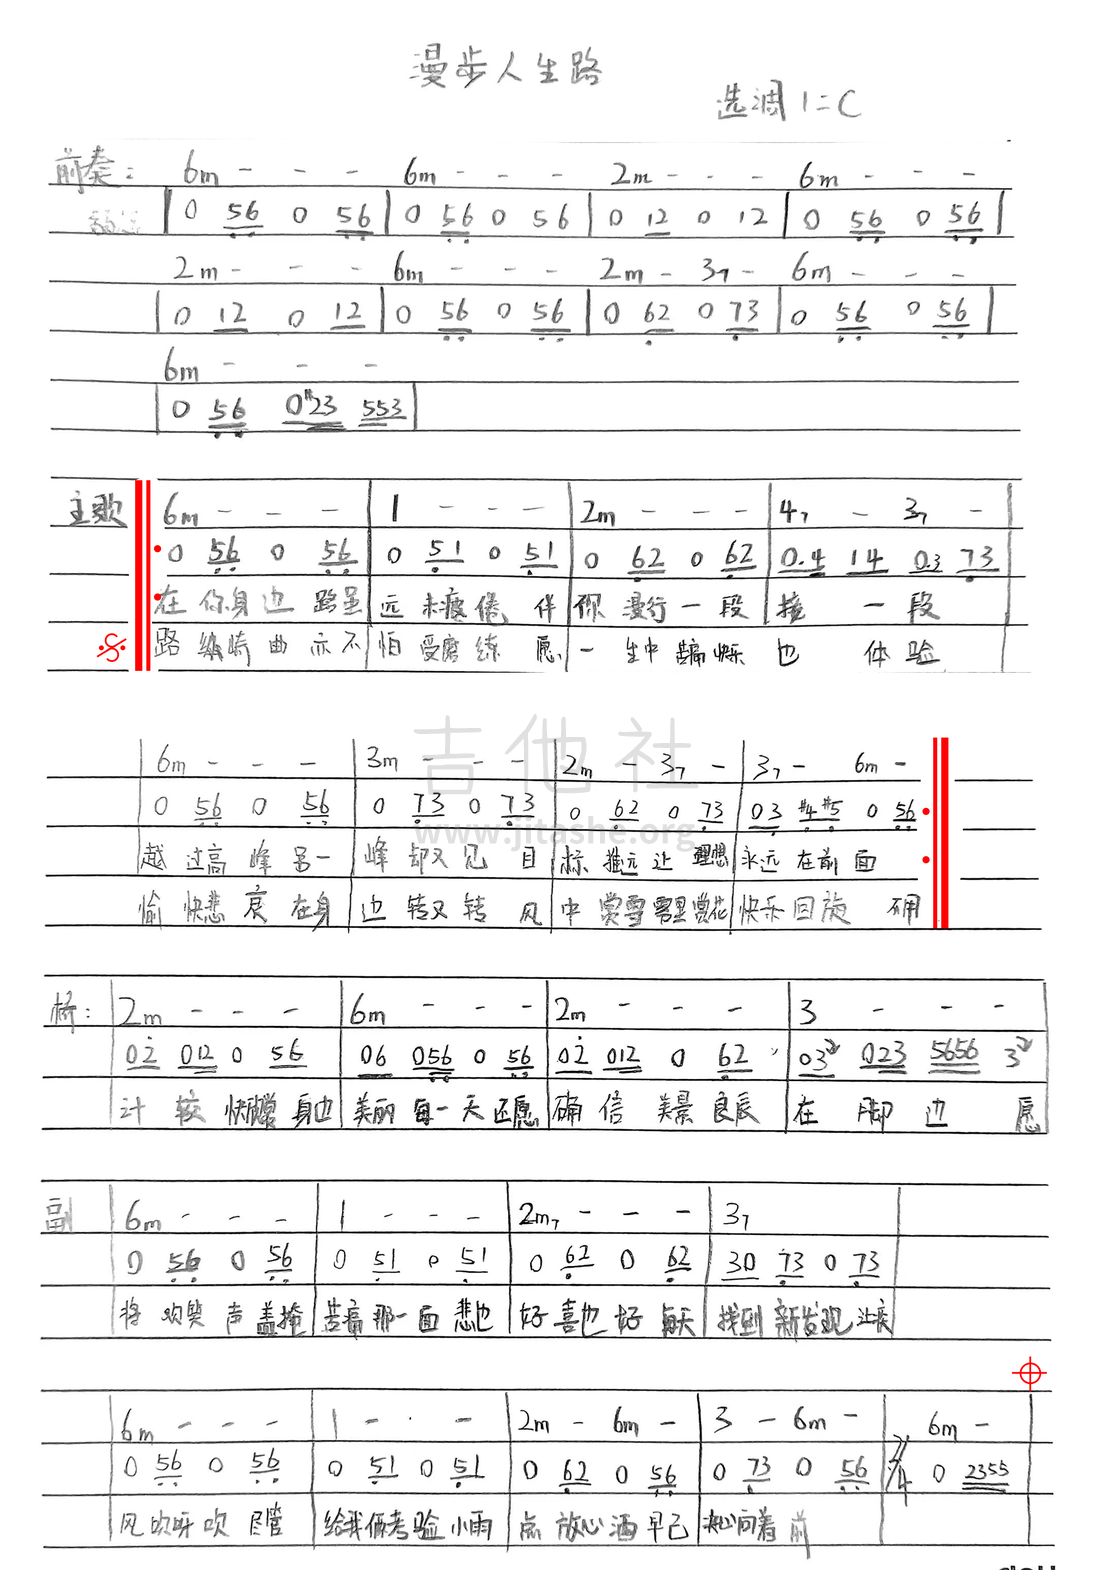 漫步人生路
选调 1=C
前奏: 6m - - - 6m - - - 2m - - - 6m - - -
0 56 0 56 | 0 56 0 56 | 0 12 0 12 | 0 56 0 56
2m - - - 6m - - - 2m - 37 - 6m - - -
0 12 0 12 | 0 56 0 56 | 0 62 0 73 | 0 56 0 56
6m - - -
0 56 0#23 553
主歌 6m - - - | 1 - - - | 2m - - - | 47 - 37 -
0 56 0 56 | 0 51 0 51 | 0 62 0 62 | 0.4 14 0.3 73
在你身边 路虽 | 远未疲倦 伴 | 你漫行一段 | 接一段
路 崎曲亦不 | 怕受磨练 愿 | 一生中苦痛快乐 | 也体验
吉他社
6m - - - | 3m - - - | 2m - 37 - | 37 - 6m -
0 56 0 56 | 0 73 0 73 | 0 62 0 73 | 03 #4#5 0 56
www.jitashe.org
越过高峰 另一 | 峰却又见 目 | 标推远 让理想 | 永远在前面
愉快悲哀在身 | 边转又转 风 | 中赏雪雾里赏花 | 快乐回旋
桥: 2m - - - | 6m - - - | 2m - - - | 3 - - -
02 012 0 56 | 06 056 0 56 | 02 012 0 62 | 03 023 5656 3
计较快 身边 | 美丽每一天还愿 | 确信美景良辰 | 在脚边 愿
副 6m - - - | 1 - - - | 2m7 - - - | 37
0 56 0 56 | 0 51 0 51 | 0 62 0 62 | 30 73 0 73
将欢笑声 盖掩 | 苦痛那一面 悲也 | 好喜也好 每天 | 找到新发现 让疾
6m - - - | 1 - · - | 2m - 6m - | 3 - 6m - | 6m -
0 56 0 56 | 0 51 0 51 | 0 62 0 56 | 0 73 0 56 | 2/4 0 2355
风吹呀吹 尽管 | 给我俩考验 小雨 | 点放心洒 早已 | 决心向着前